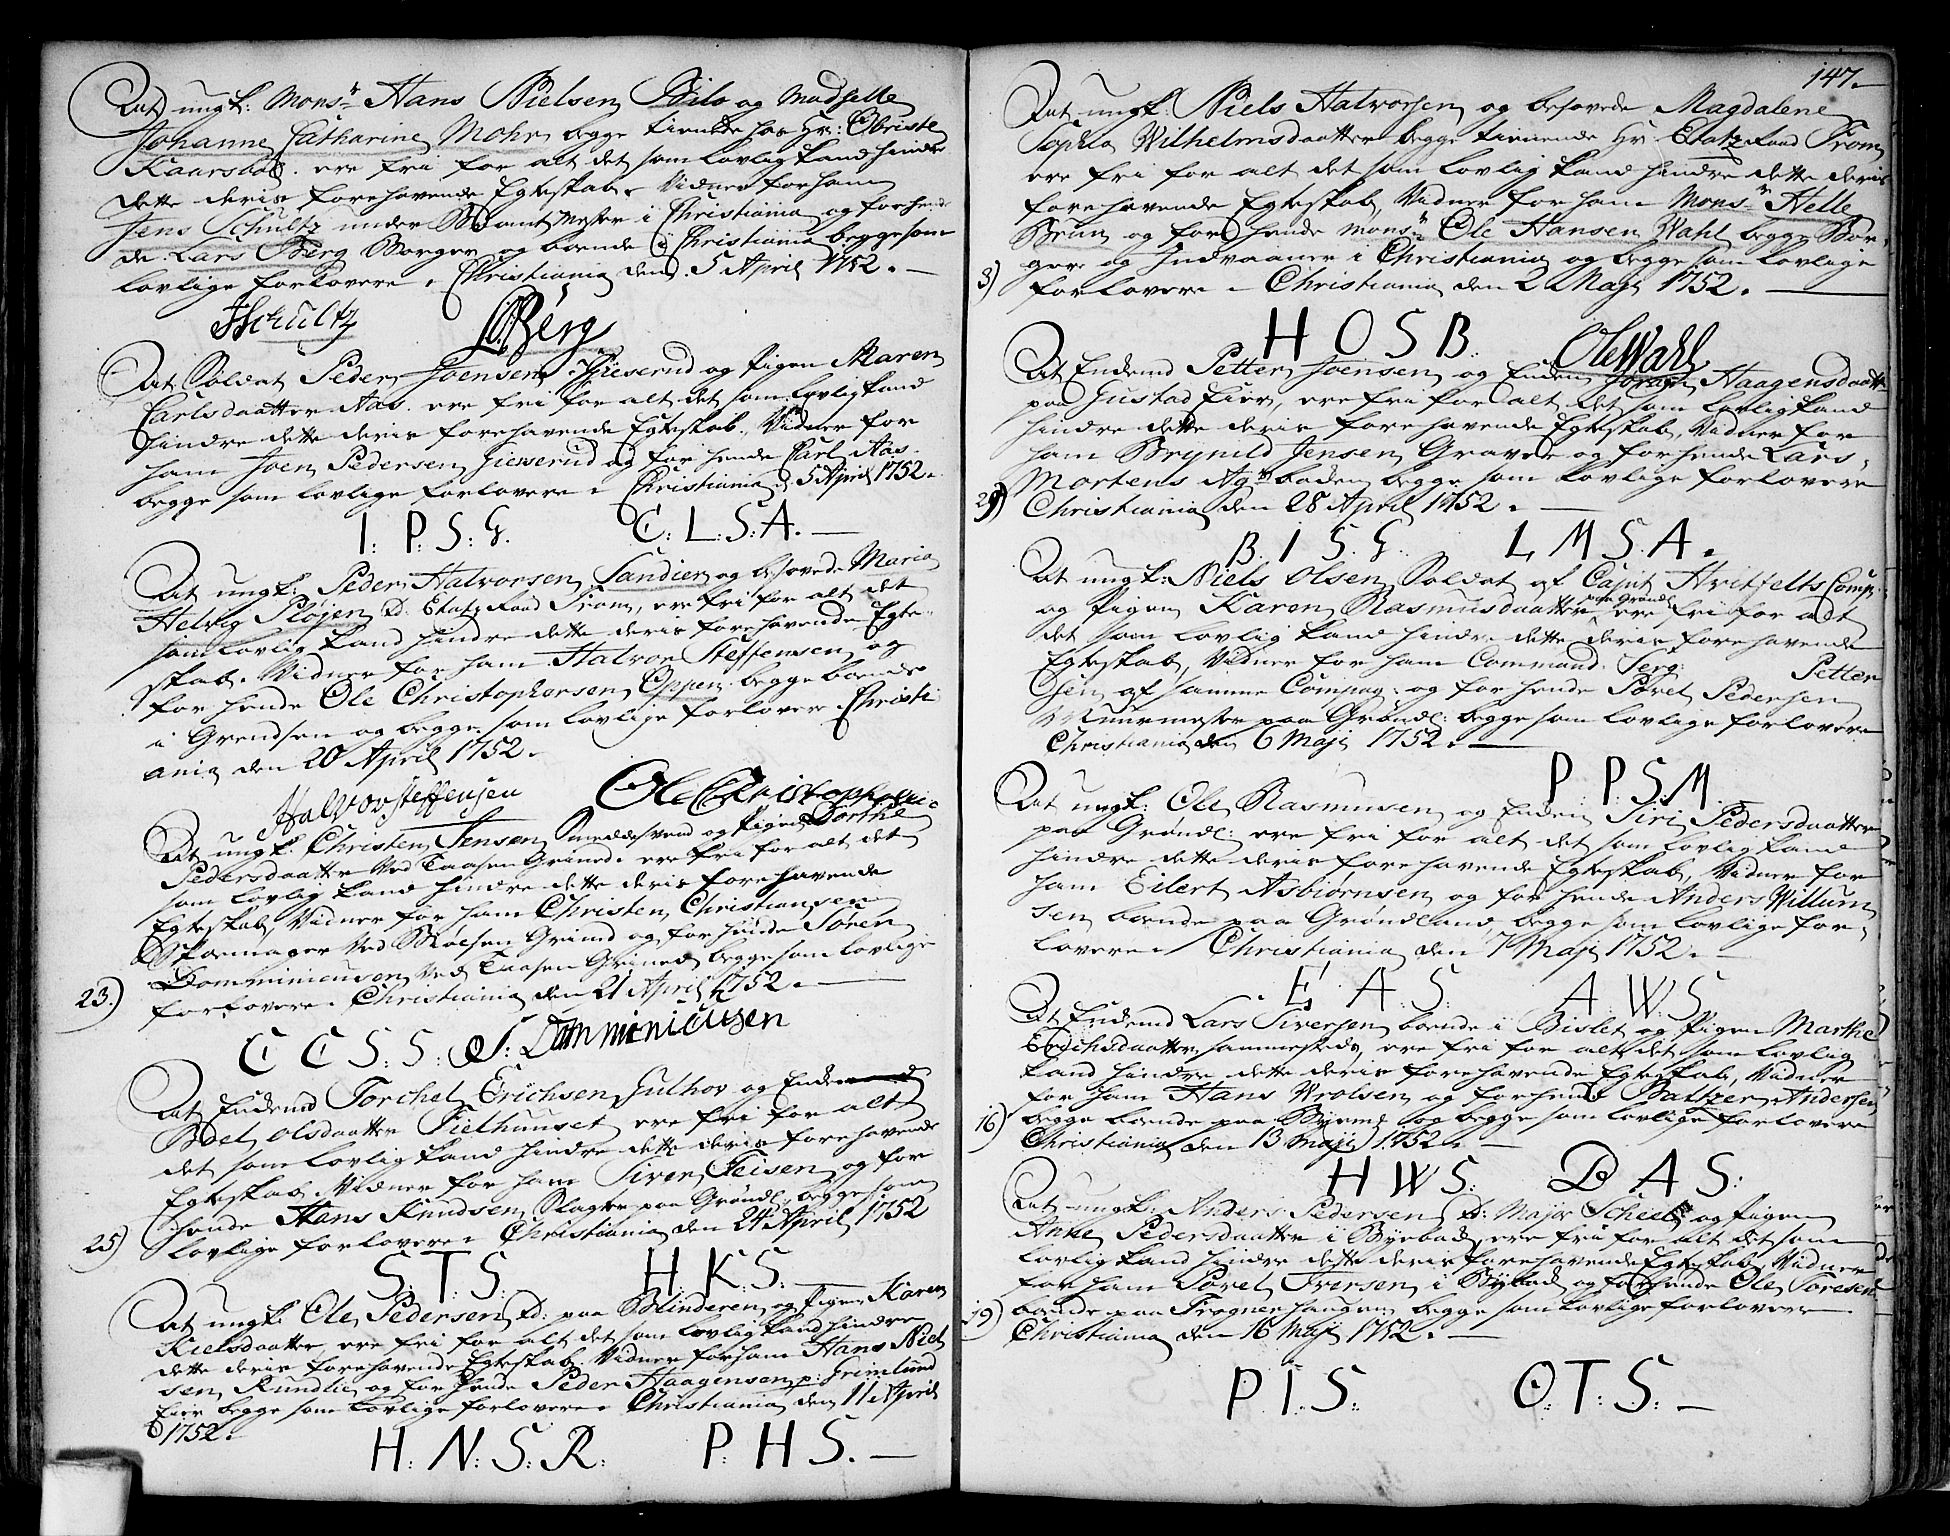 At ungk: Monsr Hans Nielsen Bilo og Madselle
Johanne Catharine Mohr begge tienende hos Hr: Obriste
Kaarsbøl. ere fri for alt det som lovlig kand hindre
dette deris forehavende Egteskab. Vidner for ham
Jens Schultz under Mester i Christiania og for hen-
de Lars Berg Borger og boende i Christiania begge som
lovlige forlovere. Christiania den 5 April 1752.
JSchultz LBerg
At Soldat Peder Joensen Gieserud og Pigen Maren
Carlsdaatter Aas. ere fri for alt det som lovlig kand
hindre dette deris forehavende Egteskab, Vidner for
ham Joen Pedersen Gieserud og for hende Carl Aas.
begge som lovlige forlovere. Christiania d. 5 April 1752.
I: P: S: G. C: L: S: A.
At ungk: Peder Halvorsen Sandier og besovede Maria
Helvig Pløjen d. Etatz Raad From, ere fri for alt det
som lovlig kand hindre dette deris forehavende Egte-
skab. Vidner for ham Halvor Steffensen og
for hende Ole Christophersen Oppen begge boende
i Grendsen og begge som lovlige forlovere Christi-
ania den 20 April 1752.
Halvor Steffensen Ole Christophersen
At ungk. Christen Jensen Smeddesvend og Pigen Dorthe
Pedersdaatter ved Taasen Grind. ere fri for alt det
som lovlig kand hindre dette deris forehavende
Egteskab, Vidner for ham Christen Christiansen
Skoemager ved Grind og for hende Søren
Domminicusen ved Taasen Grind begge som lovlige
23.) forlovere. Christiania den 21 April 1752.
C C S: S: S: Domminicusen
At Enkemd Torchel Erichsen Gulhov og Enken
Boel Olsdaatter Fielhuuset ere fri for alt
det som lovlig kand hindre dette deris forehavende
Egteskab. Vidner for ham Siver Feisen og for
hende Hans Knudsen Slagter paa Grøndl: begge som
25) lovlige forlovere. Christiania den 24 April 1752
S: T: S: H: K: S:
At ungk: Ole Pedersen d: paa Blinderen og Pigen Karen
Nielsdaatter, ere fri for alt det som lovlig kand hindre
dette deris forehavende Egteskab. Vidner for ham Hans Niel-
sen Rundlie og for hende Peder Haagensen p: Grimlund
Eier begge som lovlige forlovere. Christiania den 11 April
1752.
H: N: S: R: P: H S.
147.
At ungk: Niels Halvorsen og besovede Magdalene
Sophia Wilhelmsdaatter begge tienende Hr Etatz Raad From
ere fri for alt det som lovlig kand hindre dette deris
forehavende Egteskab, Vidner for ham Monsr Helle
Brun og for hende Monsr Ole Hansen Wahl begge Bor-
gere og Indvaaner i Christiania og begge som lovlige
3) forlovere. Christiania den 2 Maji 1752.
H O S B. Ole Wahl
At Enkemd Petter Joensen og Enken Joran Haagensdaatter
paa Gustad Eier, ere fri for alt det som lovlig kand
hindre dette deris forehavende Egteskab, Vidner for
ham Brynild Jensen Grav og for hende Lars
Mortens Agrboden begge som lovlige forlovere
29) Christiania den 28 April 1752.
B. I S. G. L, M S. A.
At ungk: Niels Olsen Soldat af Capit Hvitfelts Comp.
og Pigen Karen Rasmusdaatter paa Grøndl ere fri for alt
det som lovlig kand hindre dette deris forehavende
Egteskab, Vidner for ham Command: Serg: Petter
sen af samme Compag: og for hende Povel Pedersen
Muurmester paa Grøndl: begge som lovlige forlovere
Christiania den 6 Maji 1752.
P P. S M.
At ungk: Ole Rasmusen og Enken Siri Pedersdaatter
paa Grøndl: ere fri for alt det som lovlig kand
hindre dette deris forehavende Egteskab, Vidner for
ham Eilert Asbiørnsen og for hende Anders Willum-
sen boende paa Grøndland, begge som lovlige for-
lovere. Christiania den 7 Maji 1752.
E. A. S: A. W. S.
At Enkemd Lars Siversen boende i Bislet og Pigen Marthe
Erichsdaatter sammesteds, ere fri for alt det som lovlig
kand hindre dette deris forehavende Egteskab, Vidner
for ham Hans Wrolsen og for hende Baltzer Andersen
16) begge boende paa Byemk og begge som lovlige forlovere
Christiania den 13 Maji 1752.
H W S: B A S:
At ungk: Anders Pedersen d: Major Scheel og Pigen
Anne Pedersdaatter i Byebad, ere fri for alt det som
lovlig kand hindre dette deris forehavende Egteskab, Vidner
for ham Povel Iversen i og for hende Ole Toresen
19) boende paa Frogner haugen begge som lovlige forlovere.
Christiania den 16 Maji 1752.
P. I. S: O. T: S: